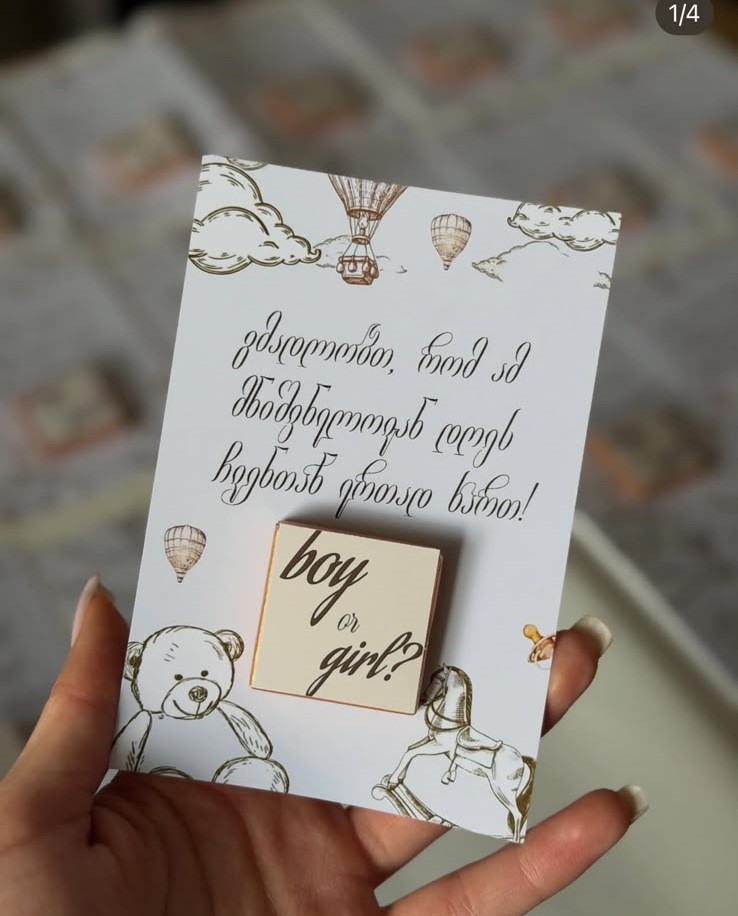 1/4
გმადლობთ, რომ ამ
მნიშვნელოვან დღეს
ჩვენთან ერთად ხართ!
boy
or
girl?